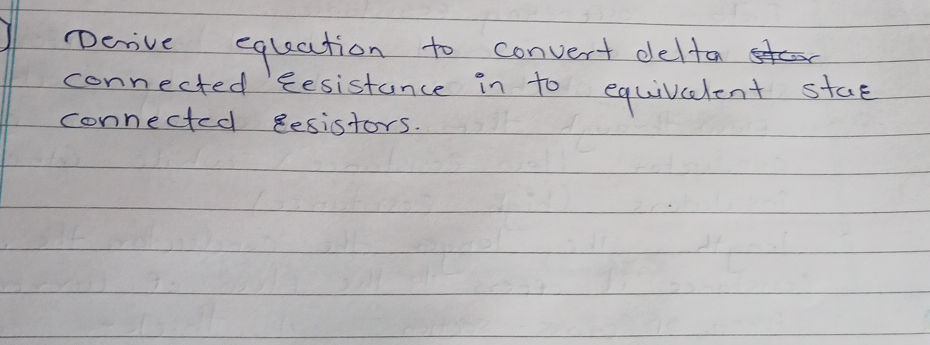 Derive equation to convert delta
connected resistance in to equivalent star
connected resistors.